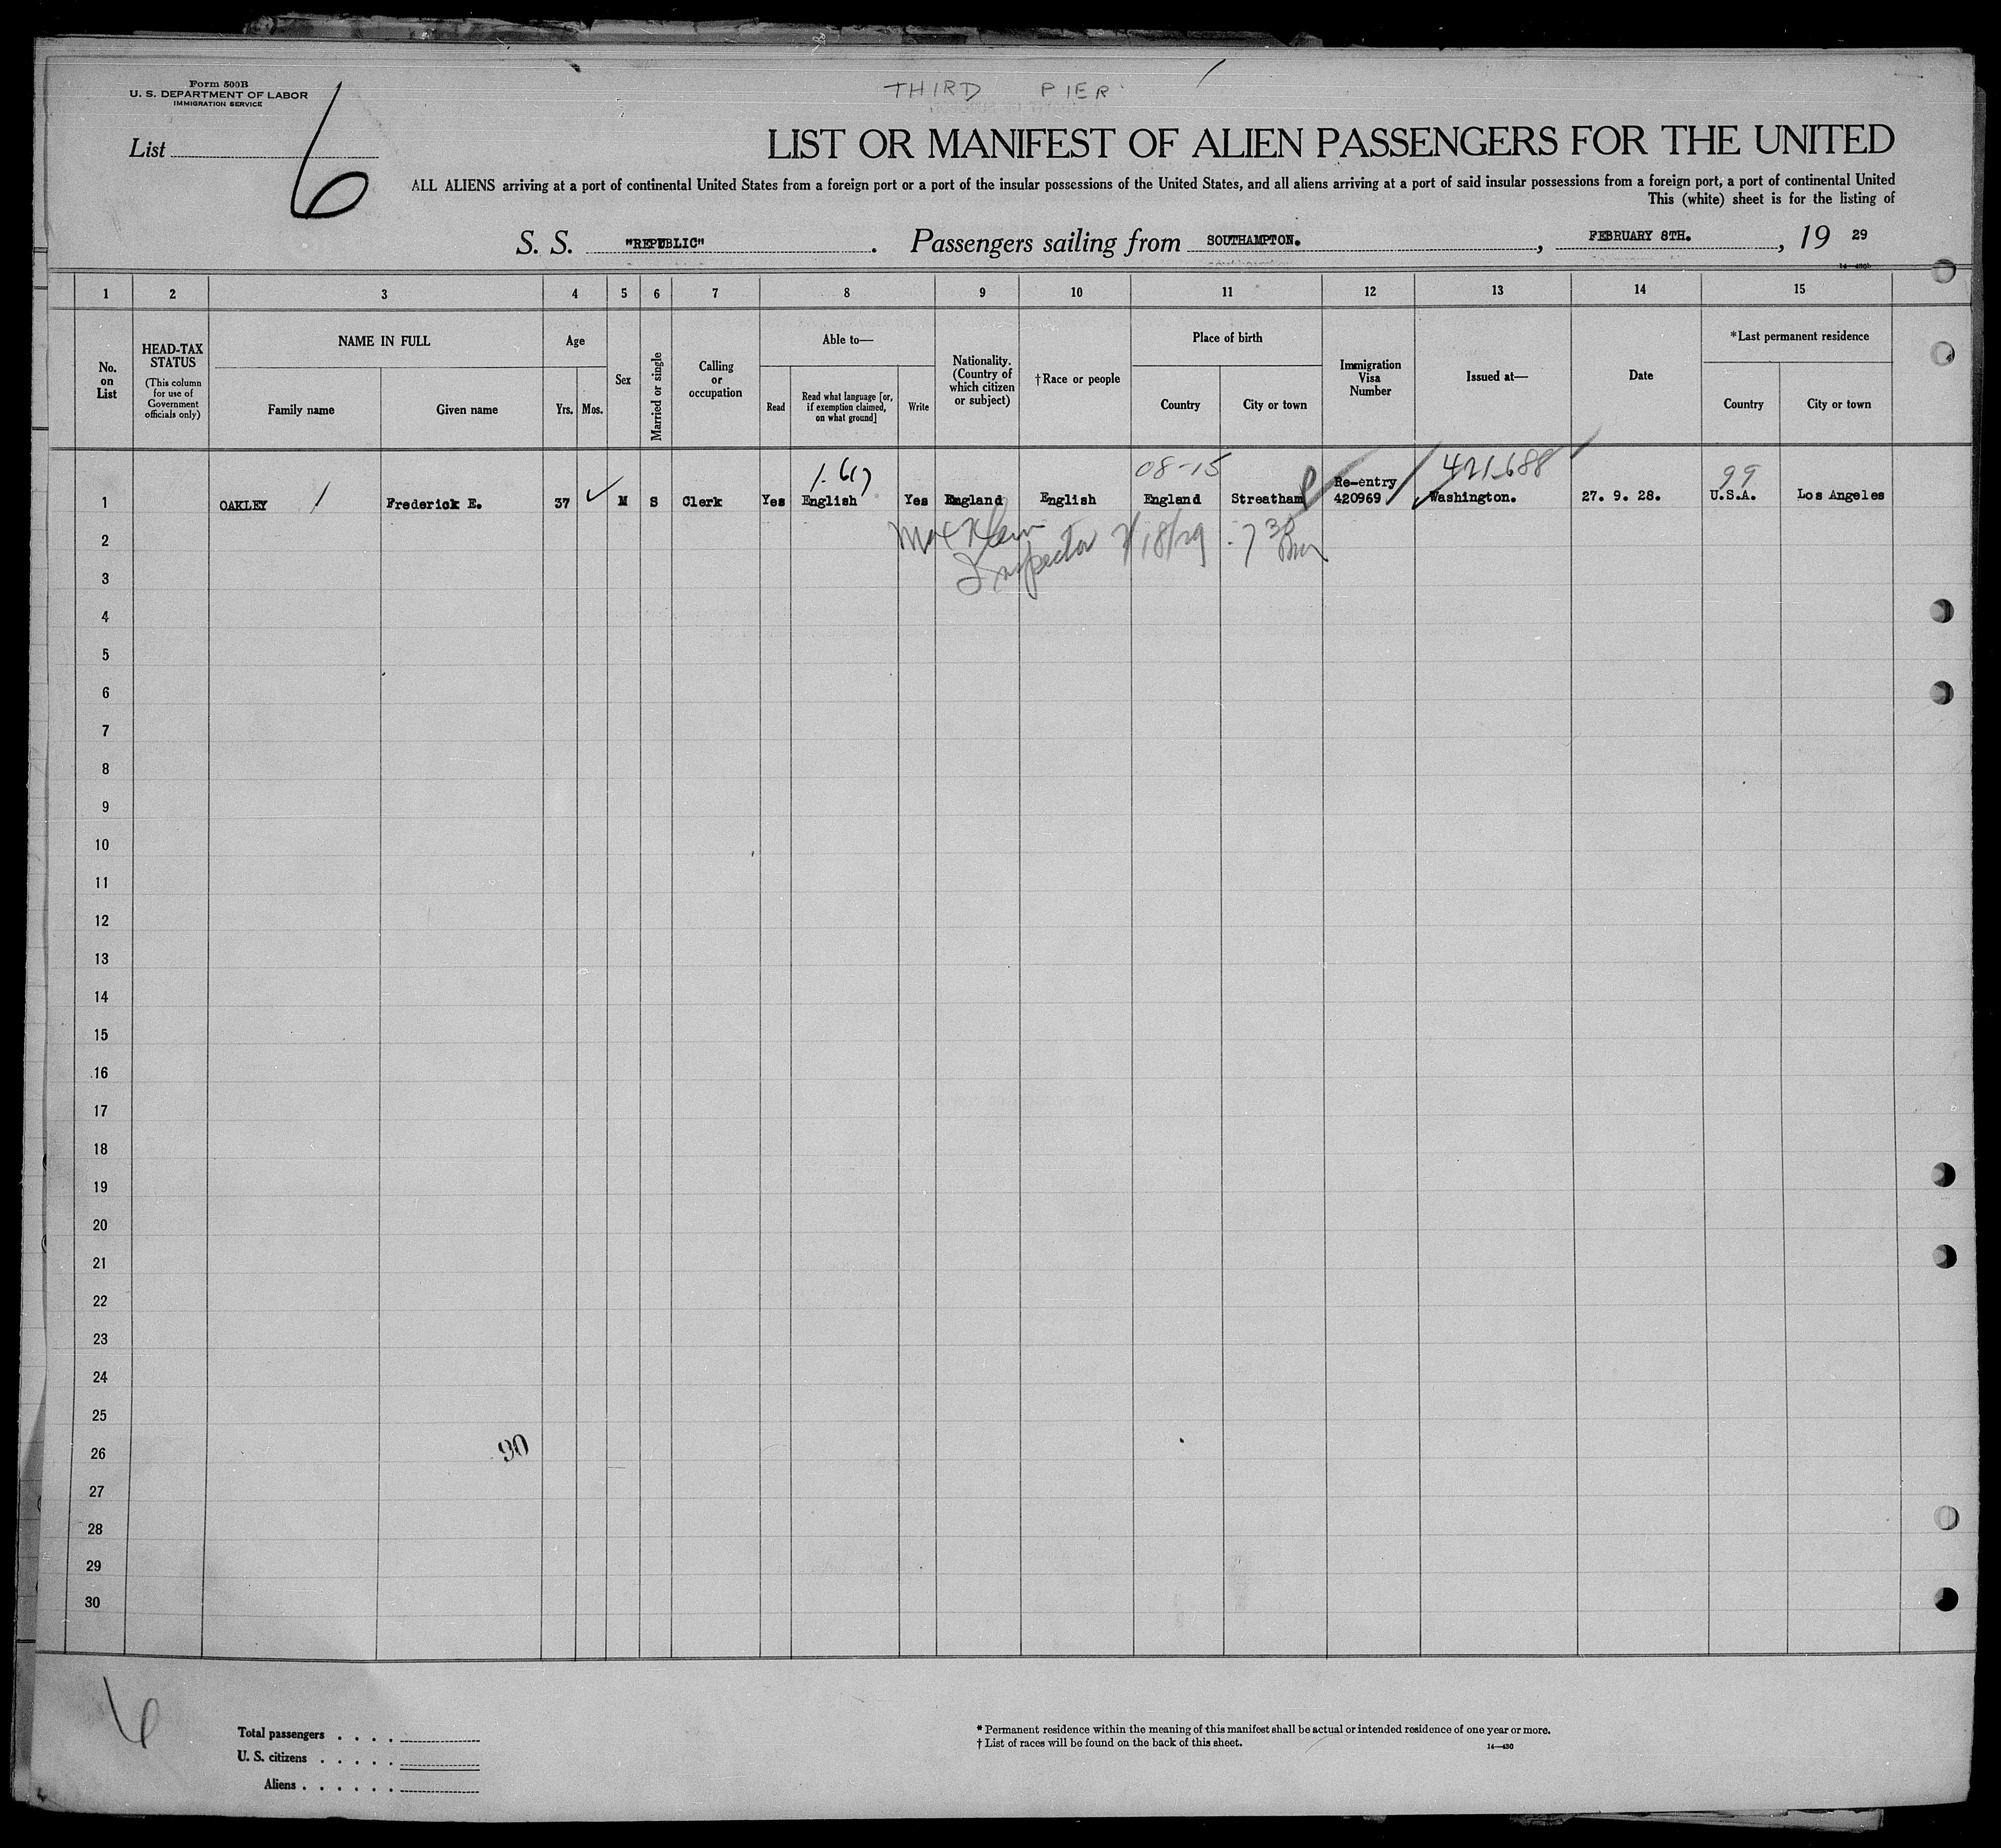 THIRD PIER
Form 500B
U. S. DEPARTMENT OF LABOR
IMMIGRATION SERVICE
List 6
LIST OR MANIFEST OF ALIEN PASSENGERS FOR THE UNITED
ALL ALIENS arriving at a port of continental United States from a foreign port or a port of the insular possessions of the United States, and all aliens arriving at a port of said insular possessions from a foreign port, a port of continental United
This (white) sheet is for the listing of
S. S. "REPUBLIC". Passengers sailing from SOUTHAMPTON., FEBRUARY 8TH., 19 29
14—430b
1 2 3 4 5 6 7 8 9 10 11 12 13 14 15
No. on List
HEAD-TAX STATUS
(This column for use of Government officials only)
NAME IN FULL
Family name Given name
Age
Yrs. Mos.
Sex
Married or single
Calling or occupation
Able to—
Read
Read what language [or, if exemption claimed, on what ground]
Write
Nationality. (Country of which citizen or subject)
†Race or people
Place of birth
Country City or town
Immigration Visa Number
Issued at—
Date
*Last permanent residence
Country City or town
08-15 421688 99
1 OAKLEY Frederick E. 37 M S Clerk Yes English Yes England English England Streatham Re-entry 420969 Washington. 27. 9. 28. U.S.A. Los Angeles
2 Max Klein
3 Inspector 2/18/29 7 30 Pm
4
5
6
7
8
9
10
11
12
13
14
15
16
17
18
19
20
21
22
23
24
25
26 90
27
28
29
30
6
Total passengers . . . .
U. S. citizens . . . . .
Aliens . . . . . .
* Permanent residence within the meaning of this manifest shall be actual or intended residence of one year or more.
† List of races will be found on the back of this sheet.
14—430